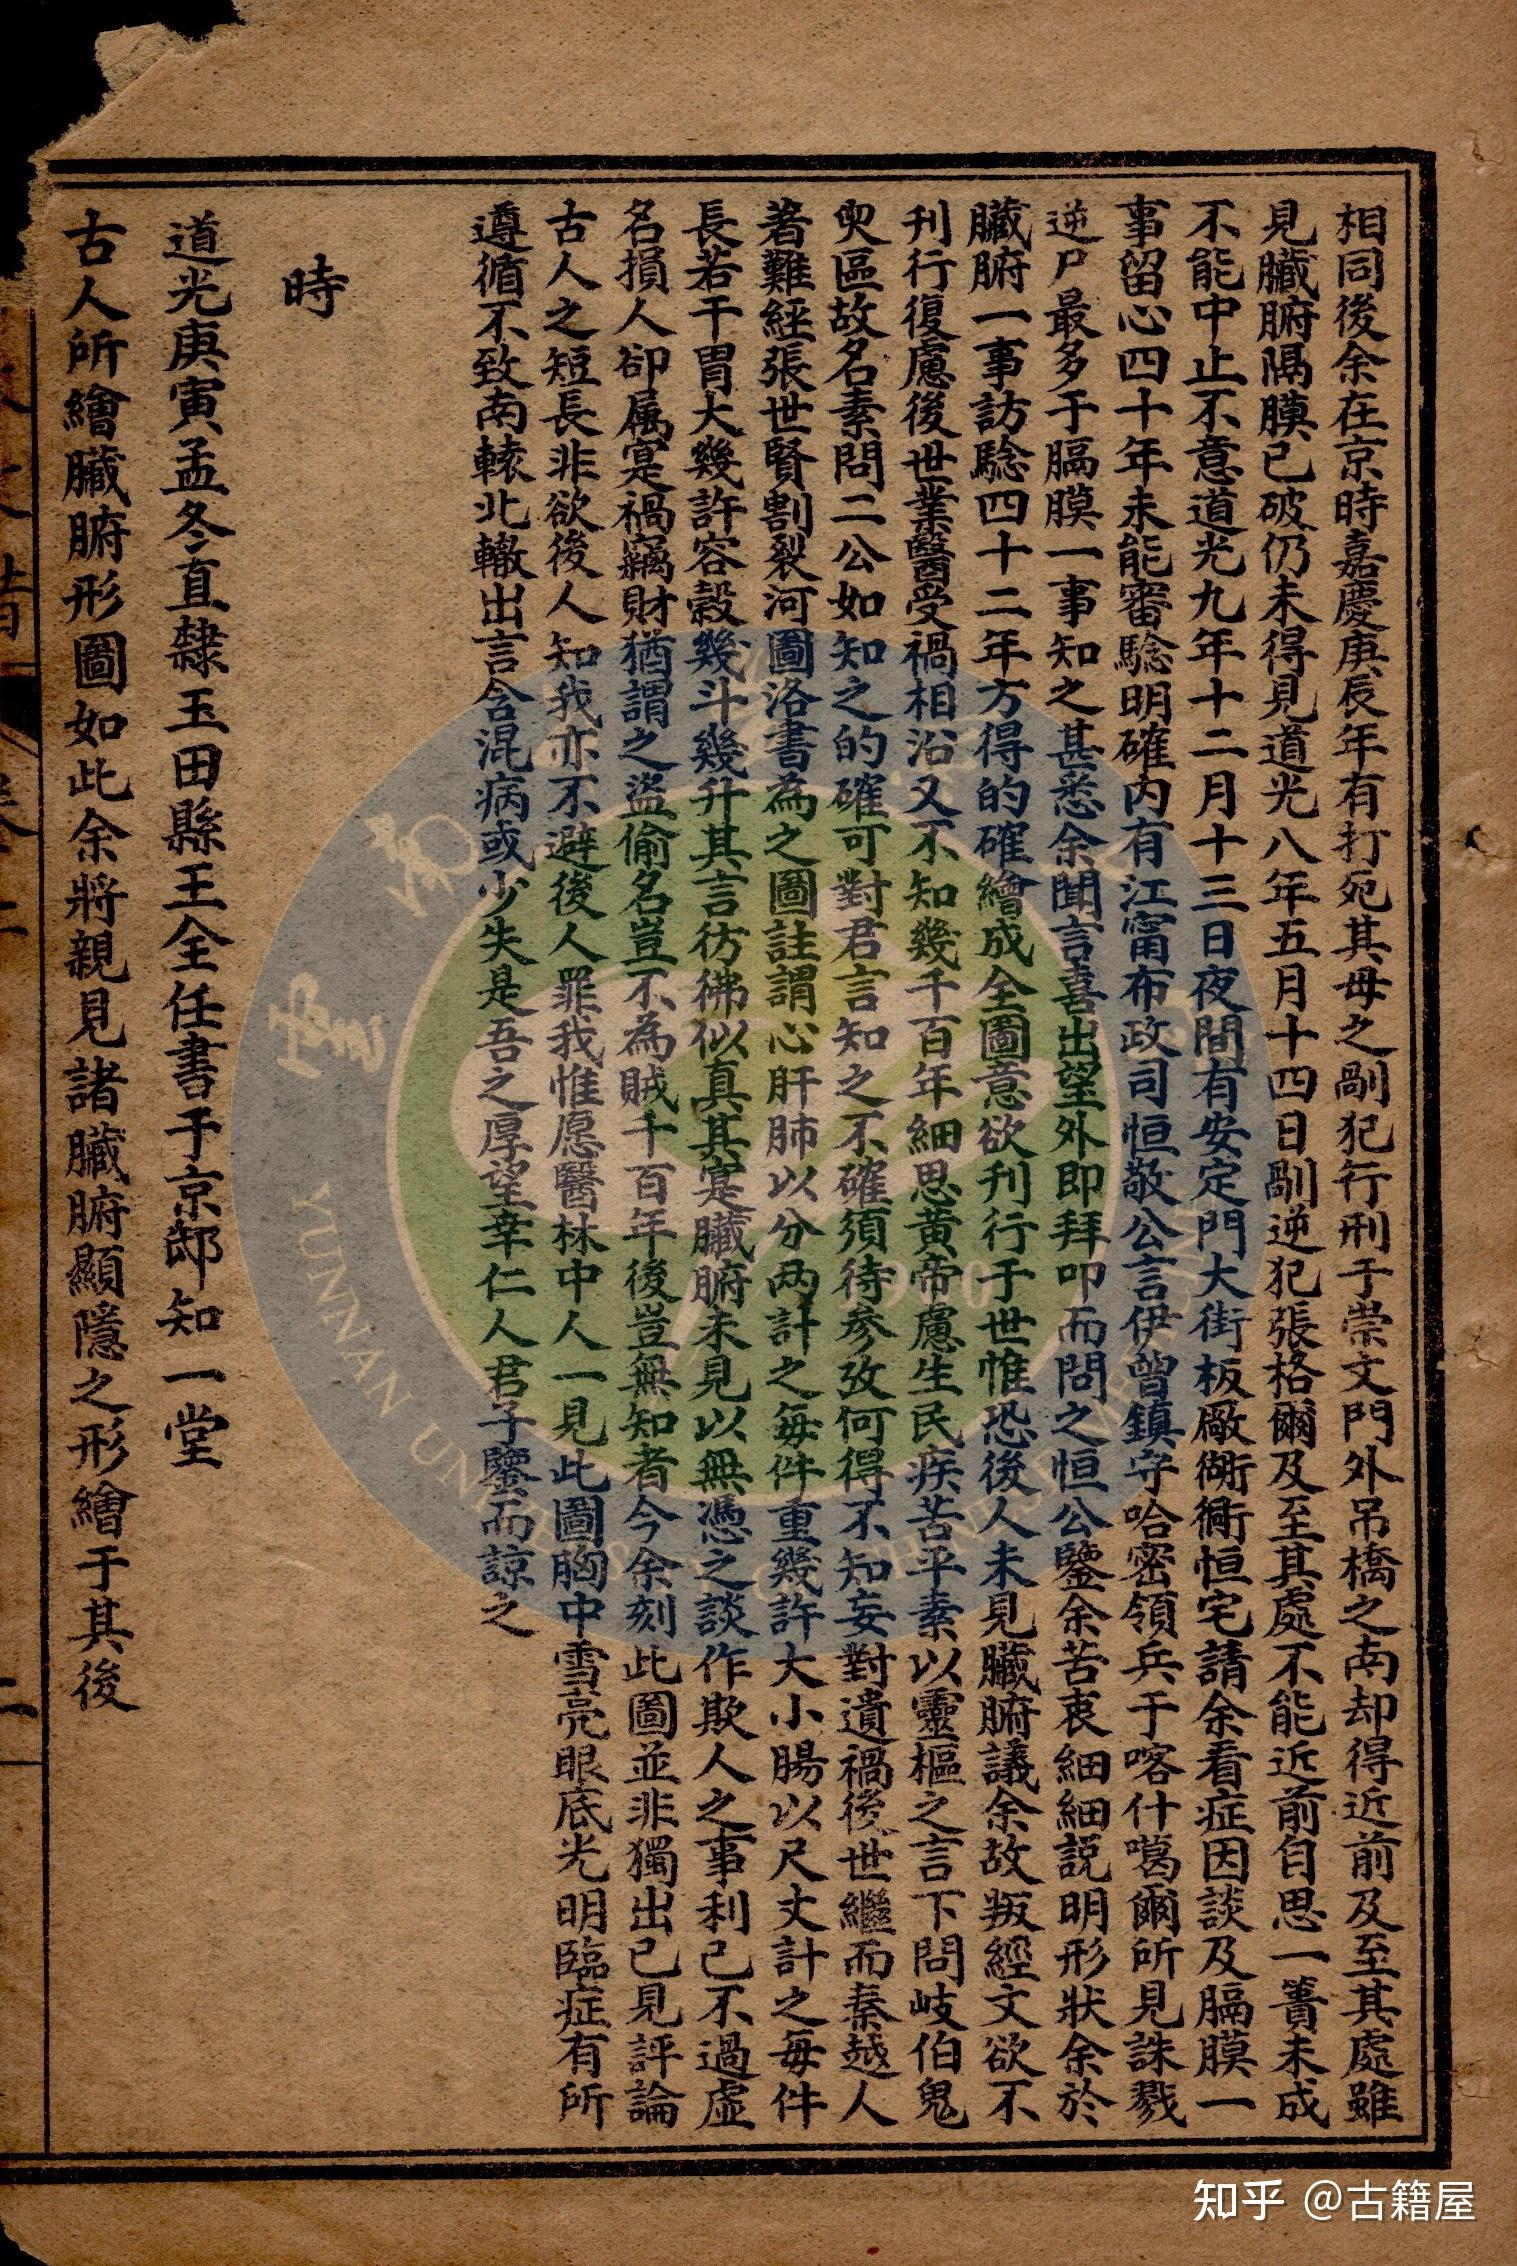 相同後余在京時嘉慶庚辰年有打死其母之剮犯行刑于崇文門外吊橋之南却得近前及至其處雖
見臟腑隔膜已破仍未得見道光八年五月十四日剮逆犯張格爾及至其處不能近前自思一簣未成
不能中止不意道光九年十二月十三日夜間有安定門大街板廠衚衕恒宅請余看症因談及膈膜一
事留心四十年未能審騐明確內有江甯布政司恒敬公言伊曾鎮守哈密領兵于喀什噶爾所見誅戮
逆尸最多于膈膜一事知之甚悉余聞言喜出望外即拜叩而問之恒公鑒余苦衷細細説明形狀余於
臟腑一事訪騐四十二年方得的確繪成全圖意欲刊行于世惟恐後人未見臟腑議余故叛經文欲不
刊行復慮後世業醫受禍相沿又不知幾千百年細思黃帝慮生民疾苦平素以靈樞之言下問岐伯鬼
臾區故名素問二公如知之的確可對君言知之不確須待參攷何得不知妄對遺禍後世繼而秦越人
著難經張世賢割裂河圖洛書為之圖註謂心肝肺以分兩計之每件重幾許大小腸以尺丈計之每件
長若干胃大幾許容穀幾斗幾升其言彷彿似真其寔臟腑未見以無憑之談作欺人之事利己不過虛
名損人卻属寔禍竊財猶謂之盜偷名豈不為賊千百年後豈無知者今余刻此圖並非獨出己見評論
古人之短長非欲後人知我亦不避後人罪我惟愿醫林中人一見此圖胸中雪亮眼底光明臨症有所
遵循不致南轅北轍出言含混病或少失是吾之厚望幸仁人君子鑒而諒之
時
道光庚寅孟冬直隸玉田縣王全任書于京邸知一堂
古人所繪臟腑形圖如此余將親見諸臟腑顯隱之形繪于其後
YUNNAN UN
知乎 @古籍屋